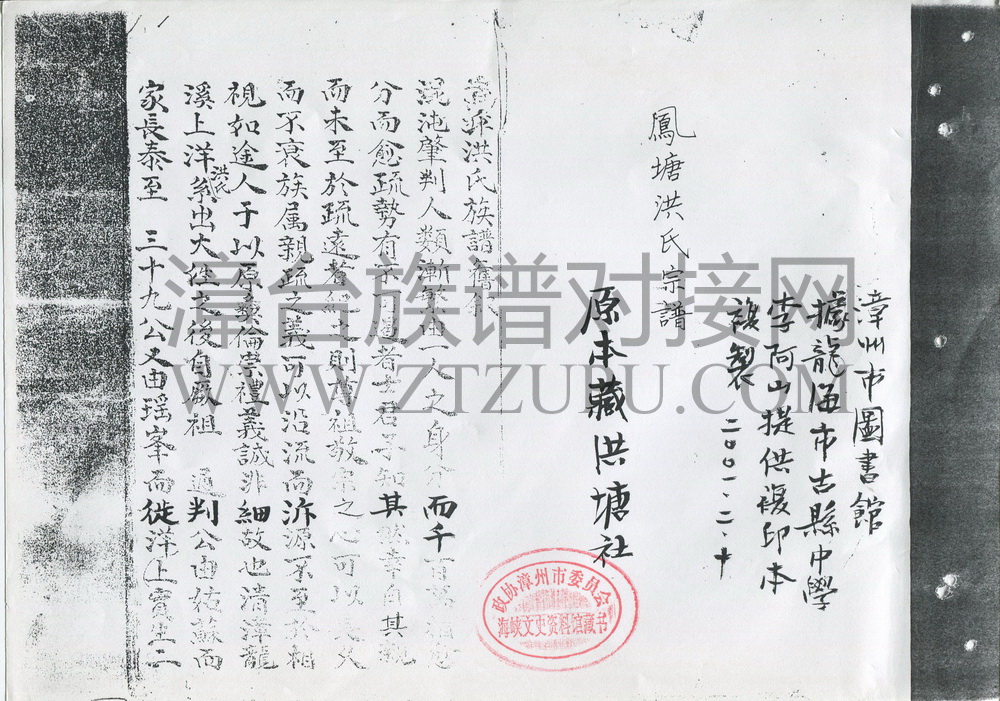 漳州市圖書館
據龍海市古縣中學
李阿山提供複印本
複製 二〇〇一.二.十
鳳塘洪氏宗譜
原本藏洪塘社
源洪氏族譜舊
混沌肇判人類漸繁由一人之身分而千百
分而愈疏勢有不可遏者士君子知其然幸自其親
而未至於疏遠者紀之則尊祖敬宗之心可以
而不衰族属親疏之義可以沿流而泝源不至相
視如途人于以厚彝倫崇禮義誠非細故也清漳龍
溪上洋洪氏系出大姓之後自厥祖 通判公由佑蘇而
家長泰至 三十九公又由瑤峯而徙洋上實生二
政协漳州市委员会
海峡文史资料馆藏书
漳台族谱对接网
WWW.ZTZUPU.COM